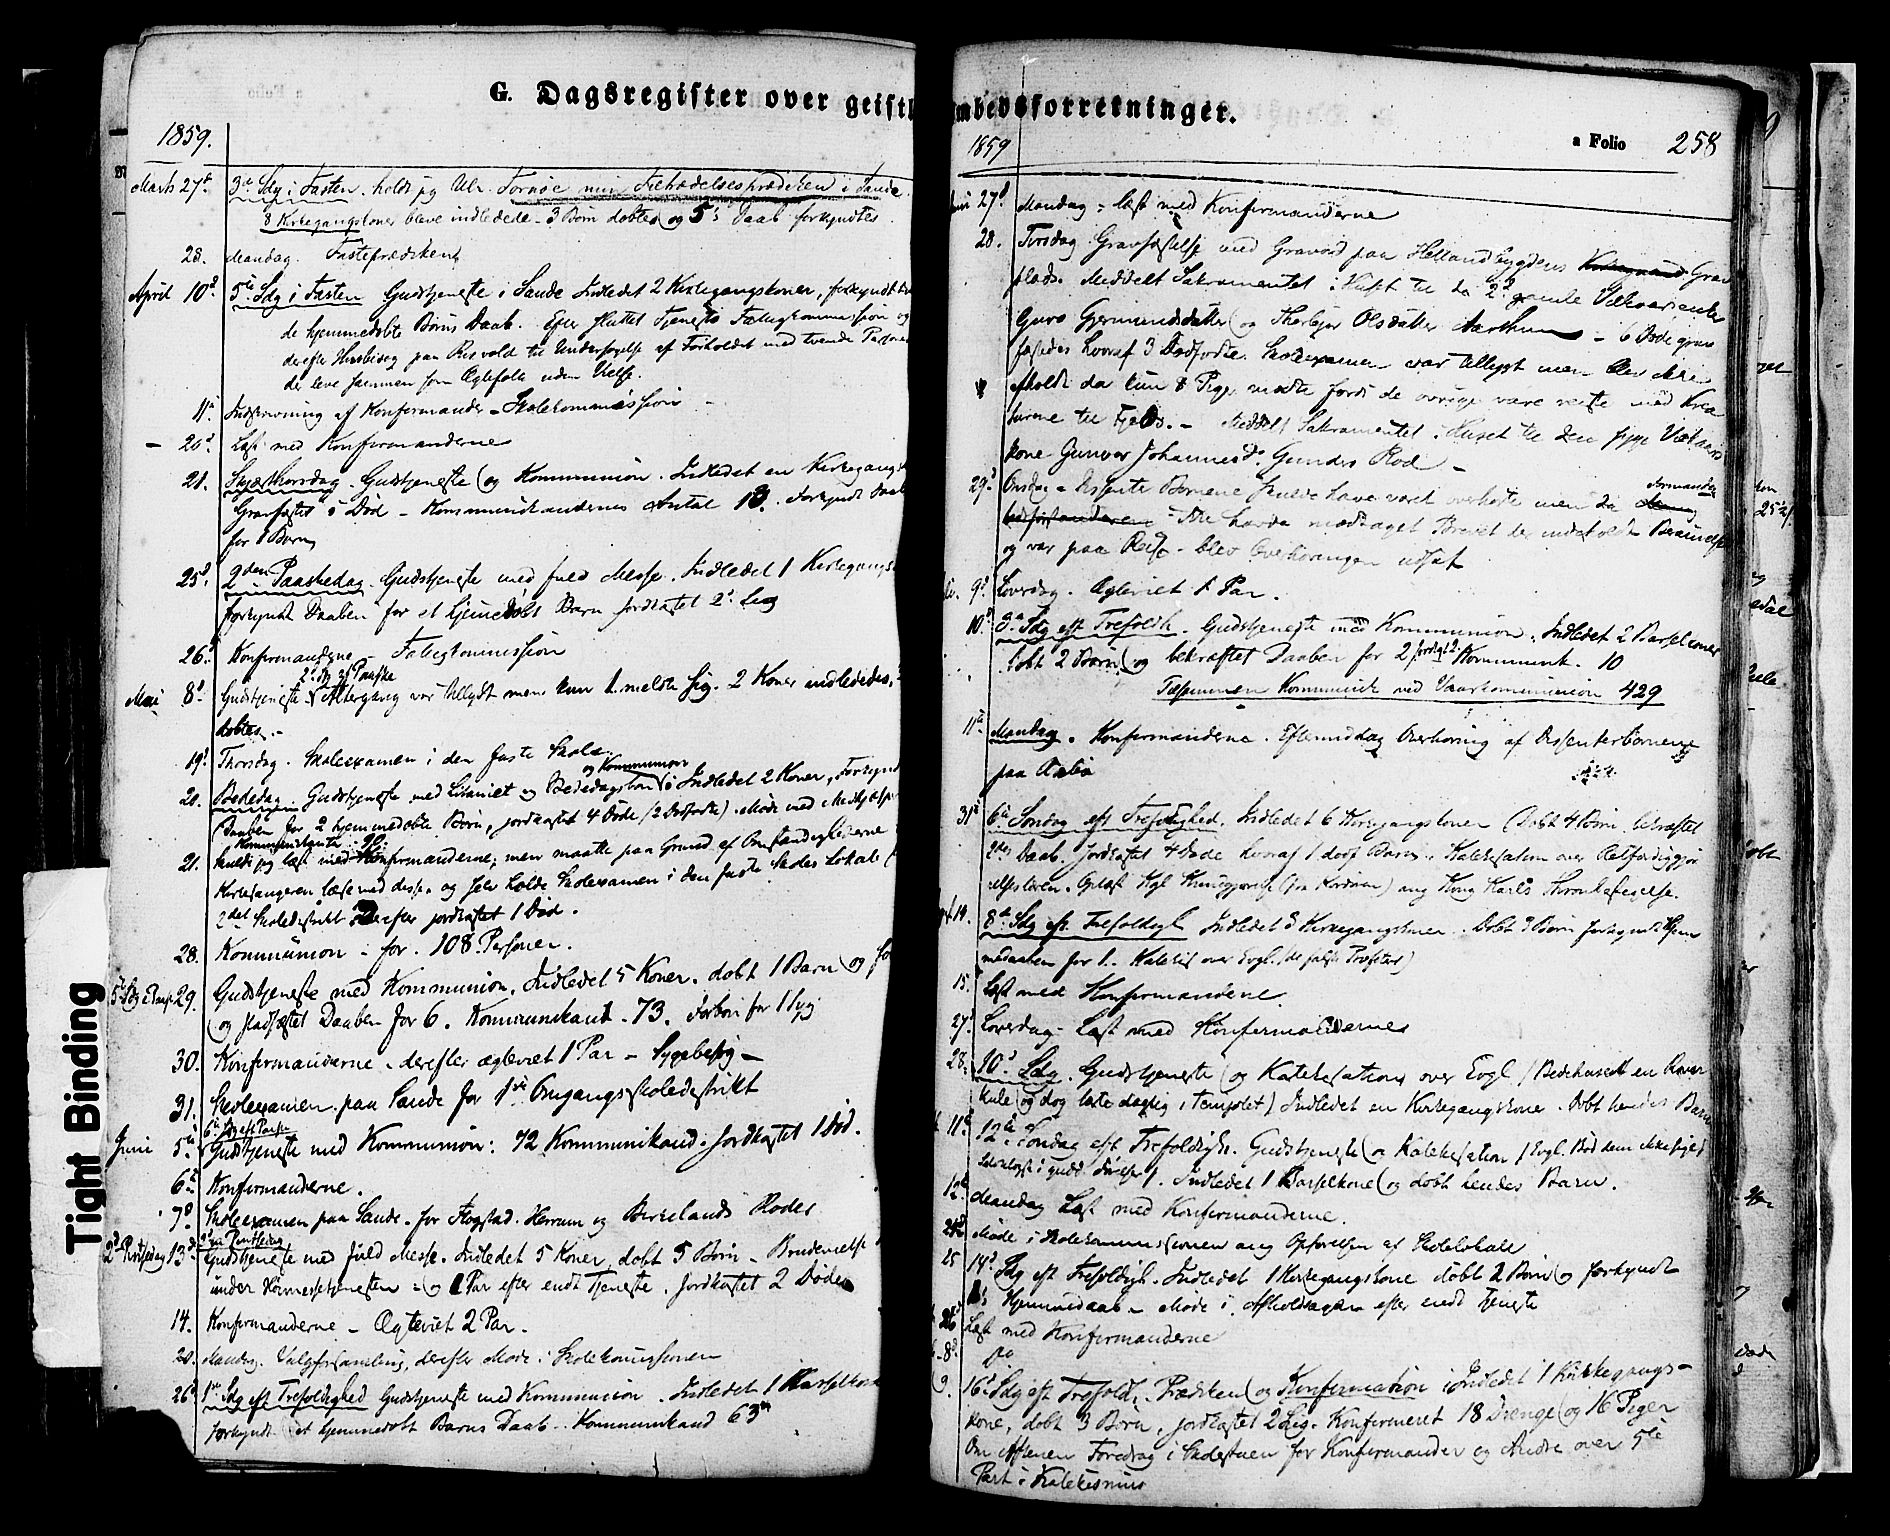 G. Dagsregister over geistl
1859.
Marts 27d 3die Sdg i Fasten holdt jeg Ulr. Tornöe min Tiltrædelsesprædiken i Sande
8 Kirkegangskoner bleve indledede - 3 Börn döbtes og 5s Daab forkyndtes
28. Mandag. Fasteprædiken
April 10d 5te Sdg i Fasten Gudstjeneste i Sande Indledet 2 Kirkegangskoner, forkyndt
de hjemmedöbte Börns Daab. Efter sluttet Tjeneste Fattigkommission og
derefter paa Risvold til Undersögelse af Forholdet med tvende Personer
der leve sammen som Ægtefolk uden Vielse.
11te Indskrivning af Konfirmander - Skolekommission
20d Læst med Konfirmanderne
21. Skjærthorsdag. Gudstjeneste og Kommunion. Indledet en Kirkegangsk
Gravfæstet 1 Död - Kommunikandernes Antal 18. Forkyndt Daab
for 1 Barn
25d 2den Paaskedag. Gudstjeneste med fuld Messe. Indledet 1 Kirkegangsk
forkyndt Daaben for et hjemdöbt Barn jordkastet 2 Lig
26d Konfirmanderne - Fattigkommission
2d Sdg ef Paaske
Mai 8d Gudstjeneste - Altergang var tillyst men kun 1 meldte sig. 2 Koner indlededes,
döbtes. -
19d Thorsdag. Skoleexamen i den faste Skole.
og Kommunion
20. Bededag. Gudstjeneste med Litaniet og Bededagsbön. Indledet 2 Koner, Forkyndt
Daaben for 2 hjemmedöbte Börn, jordkastet 4 Döde (2 Dödfödte). Möde med Medhjælper
21. skulde jeg læst med Konfirmanderne; men maatte paa Grund af Omstændighederne
Kirkesangeren læse med disse og selv holde Skoleexamen i den faste Skoles Lokale
2det Skoledistrikt. Derefter jordkastet 1 Död.
28. Kommunion - for 108 Personer.
5te Sdg e Paas 29. Gudstjeneste med Kommunion. Indledet 5 Koner. döbt 1 Barn og
og stadfæstet Daaben for 6. Kommunikant. 73. Forbön for 1 Syg
30. Konfirmanderne - derefter ægteviet 1 Par - Sygebesög -
31. Skoleexamen paa Sande for 1ste Omgangsskoledistrikt
6te Sdg eft Paaske
Juni 5te Gudstjeneste med Kommunion: 72 Kommunikand. Jordkastet 1 Död.
6te Konfirmanderne.
7d Skoleexamen paa Sande. for Flogstad. Herrum og Birkelands Roder
2den Pintsedag
2d Pintsedag 13d Gudstjeneste med fuld Messe. Indledet 5 Koner, döbt 5 Börn - Brudevielse
under Höimessetjenesten - og 1 Par efter endt Tjeneste. Jordkastet 2 Döde
14. Konfirmanderne - Ægteviet 2 Par.
20. Mandag. Valgforsamling, derefter Möde i Skolekommissionen
26d 1ste Sdg eft Trefoldighed Gudstjeneste med Kommunion. Indledet 1 Barselkone
forkyndt et hjemmedöbt Barns Daab. Kommunikand 63
mbedsforretninger.
1859
a Folio 258
Juni 27d Mandag - læst med Konfirmanderne
28. Tirsdag Gravfæstelse med Gravöl paa Hellandsbygdens Kirkegaard Grav
plads. Meddelt Sakramentet i Huset til de 2de gamle
Guro Gjermundsdatter og Thorbjör Olsdatter Aarthun - 6 Döde grav
fæstedes hvoraf 3 Dödfödte. Skoleexamen var tillyst men blev ikke
afholdt da kun 8 Pige mödte fordi de övrige vare reiste med Krea
turene til Fjelds. - Meddelt Sakramentet i Huset til den syge
kone Gunvor Johannesd. Gundes Rod -
formanden
29d Onsdag - Dissenter Börnene skulde have været overhörte men da
ikke havde modtaget Brevet der indeholdt Berammelse
og var paa Reise - blev Overhöringen udsat
9d Löverdag. Ægteviet 1 Par.
10d 3die Sdg eft Trefoldh. Gudstjeneste med Kommunion. Indledet 2 Barselkoner
döbt 2 Börn og bekræftet Daaben for 2 Kommunik. 10
Tilsammen Kommunik ved Vaarkommunion 429
11te Mandag. Konfirmanderne. Eftermiddag Overhöring af Dissenterbörnene
paa
31te 6te Söndag eft Trefoldighed. Indledet 6 Kirkegangskoner Döbt 4 Börn. bekræftet
Daab. Jordkastet 4 Döde hvoraf 1 dödf Barn. Katekisation over Retfærdiggjör
elseslæren. Oplæst Kgl Kundgjörelse (fra Kordören) ang Kong Karls Thronbestigelse.
14. 8de Sdg eft. Trefoldigh Indledet 3 Kirkegangskoner. Döbt 3 Börn forkyndt Hjem
medaaben for 1. Katekis over Evgl. (de falske Profeter)
15. Læst med Konfirmanderne.
27d Löverdag - Læst med Konfirmandernes
28. 10d Sdg. Gudstjeneste og Katekisation over Evgl (Bedehuset en Röver
kule og dog lærte daglig i Templet) Indledet en Kirkegangskone. Döbt hendes Barn
11te 12te Söndag eft Trefoldigh. Gudstjeneste og Katekisation
1. Indledet 1 Barselkone og döbt hendes Barn.
12te Mandag Læst med Konfirmanderne.
24d Möde i Skolekommissionen ang Opförelsen af Skolelokale
25 14d Sdg eft Trefoldigh. Indledet 1 Kirkegangskone döbt 2 Börn og forkyndt
1s Hjemmedaab - Möde i Afholdssagen efter endt Tjeneste
26d Læst med Konfirmanderne
8d do
9. 16d Sdg eft Trefold. Prædiken og Konfirmation. Indledet 1 Kirkegangs-
kone, döbt 3 Börn, jordkastet 2 Lig. Konfirmeret 18 Drenge og 16 Piger
Om Aftenen Foredrag i Ladestuen for Konfirmander og Andre over 5te
Part i Katekismus
Tight Binding